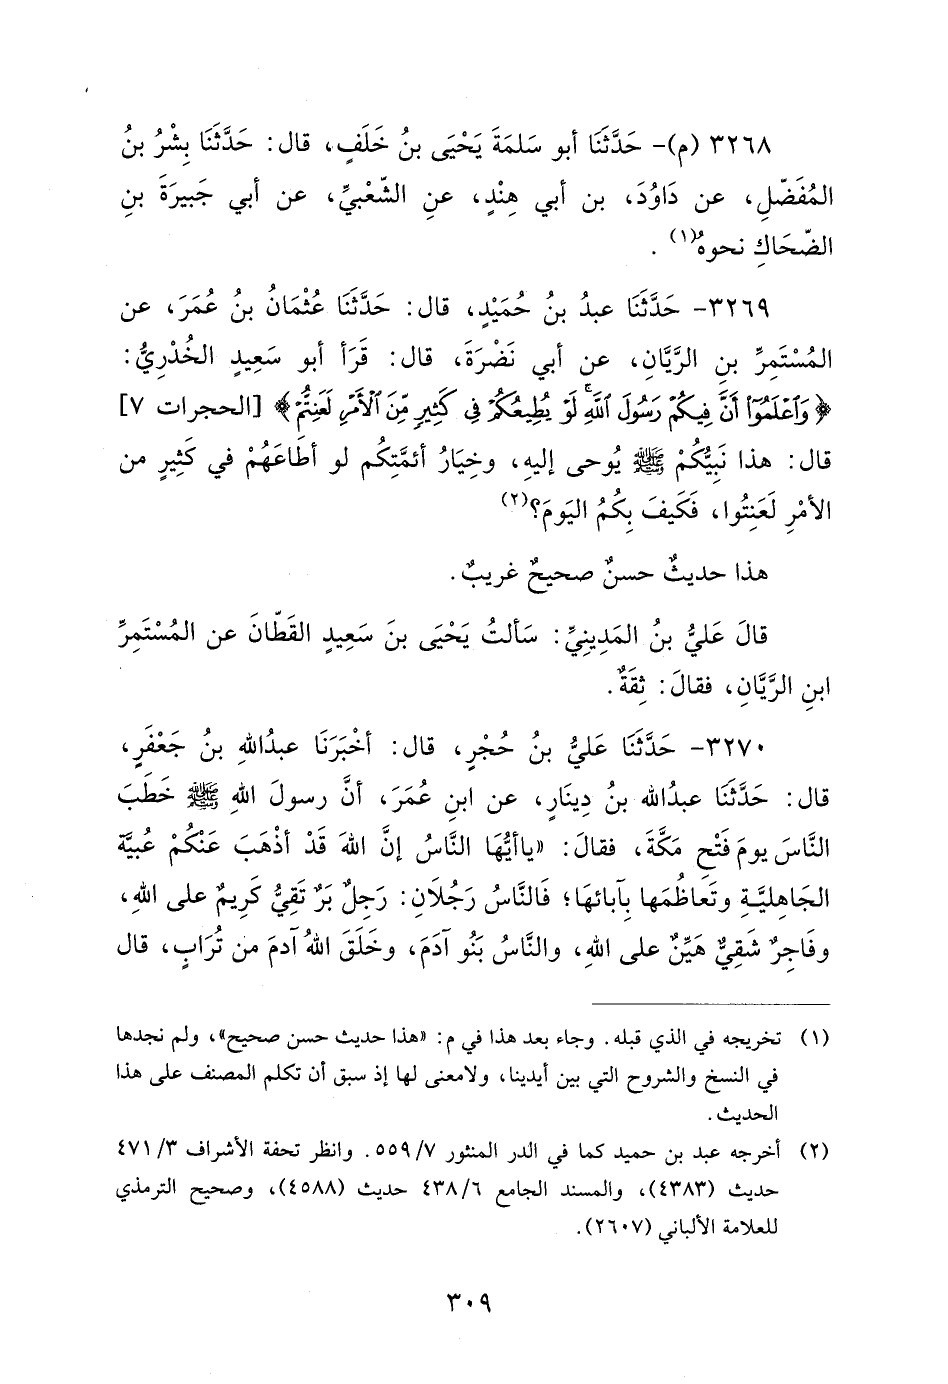 ٣٢٦٨ (م)- حَدَّثَنَا أبو سَلمَةَ يَحْيَى بنُ خَلَفٍ، قال: حَدَّثَنَا بِشْرُ بنُ
المُفَضّلِ، عن دَاوُدَ، بن أبي هِنْدٍ، عنِ الشّعْبيِّ، عن أبي جَبيرَةَ بنِ
الضّحَاكِ نحوهُ(١) .
٣٢٦٩- حَدَّثَنَا عبدُ بنُ حُمَيْدٍ، قال: حَدَّثَنَا عُثْمَانُ بنُ عُمَرَ، عن
المُسْتَمِرِّ بنِ الرَّيَّانِ، عن أبي نَضْرَةَ، قال: قَرَأ أبو سَعِيدٍ الخُدْرِيُّ:
﴿وَٱعْلَمُوٓا۟ أَنَّ فِيكُمْ رَسُولَ ٱللَّهِ ۚ لَوْ يُطِيعُكُمْ فِى كَثِيرٍ مِّنَ ٱلْأَمْرِ لَعَنِتُّمْ﴾ [الحجرات ٧]
قال: هذا نَبيُّكُمْ ﷺ يُوحى إليهِ، وخِيَارُ أئمَّتِكُم لو أطَاعَهُمْ في كَثِيرٍ من
الأمْرِ لَعَنِتُوا، فَكَيفَ بِكُمُ اليَومَ؟(٢)
هذا حديثٌ حسنٌ صحيحٌ غريبٌ.
قالَ عَليُّ بنُ المَدِينِيِّ: سَألتُ يَحْيَى بنَ سَعِيدٍ القَطّانَ عن المُسْتَمِرِّ
ابنِ الرَّيَّانِ، فقالَ: ثِقَةٌ.
٣٢٧٠- حَدَّثَنَا عَليُّ بنُ حُجْرٍ، قال: أخْبَرَنَا عبدُاللهِ بنُ جَعْفَرٍ،
قال: حَدَّثَنَا عبدُالله بنُ دِينَارٍ، عن ابنِ عُمَرَ، أنَّ رسولَ اللهِ ﷺ خَطَبَ
النَّاسَ يومَ فَتْحِ مَكَّةَ، فقالَ: «ياأيُّهَا النَّاسُ إنَّ اللهَ قَدْ أذْهَبَ عَنْكُمْ عُبيَّة
الجَاهِليَّةِ وتَعَاظُمَها بِآبائهَا؛ فَالنَّاسُ رَجُلَانِ: رَجِلٌ بَرٌ تَقِيُّ كَرِيمٌ على اللهِ،
وفَاجِرٌ شَقِيٌّ هَيِّنٌ على اللهِ، والنَّاسُ بَنُو آدَمَ، وخَلَقَ اللهُ آدمَ من تُرَابٍ، قال
(١) تخريجه في الذي قبله. وجاء بعد هذا في م: «هذا حديث حسن صحيح»، ولم نجدها
في النسخ والشروح التي بين أيدينا، ولامعنى لها إذ سبق أن تكلم المصنف على هذا
الحديث.
(٢) أخرجه عبد بن حميد كما في الدر المنثور ٥٥٩/٧. وانظر تحفة الأشراف ٤٧١/٣
حديث (٤٣٨٣)، والمسند الجامع ٤٣٨/٦ حديث (٤٥٨٨)، وصحيح الترمذي
للعلامة الألباني (٢٦٠٧).
٣٠٩